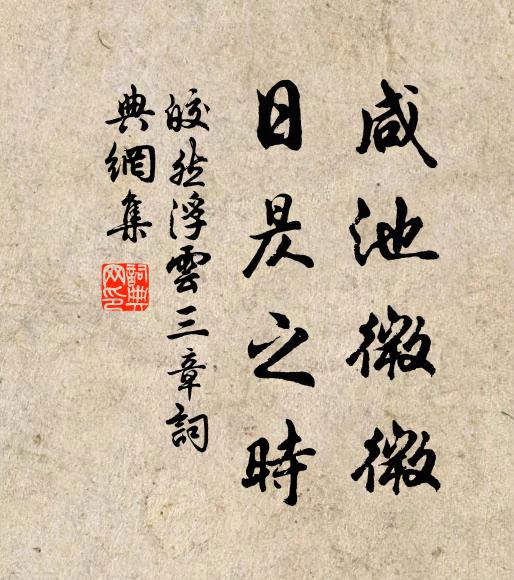 咸池微微
日昃之時
皎然浮雲三章詞
典網集
詞典網印